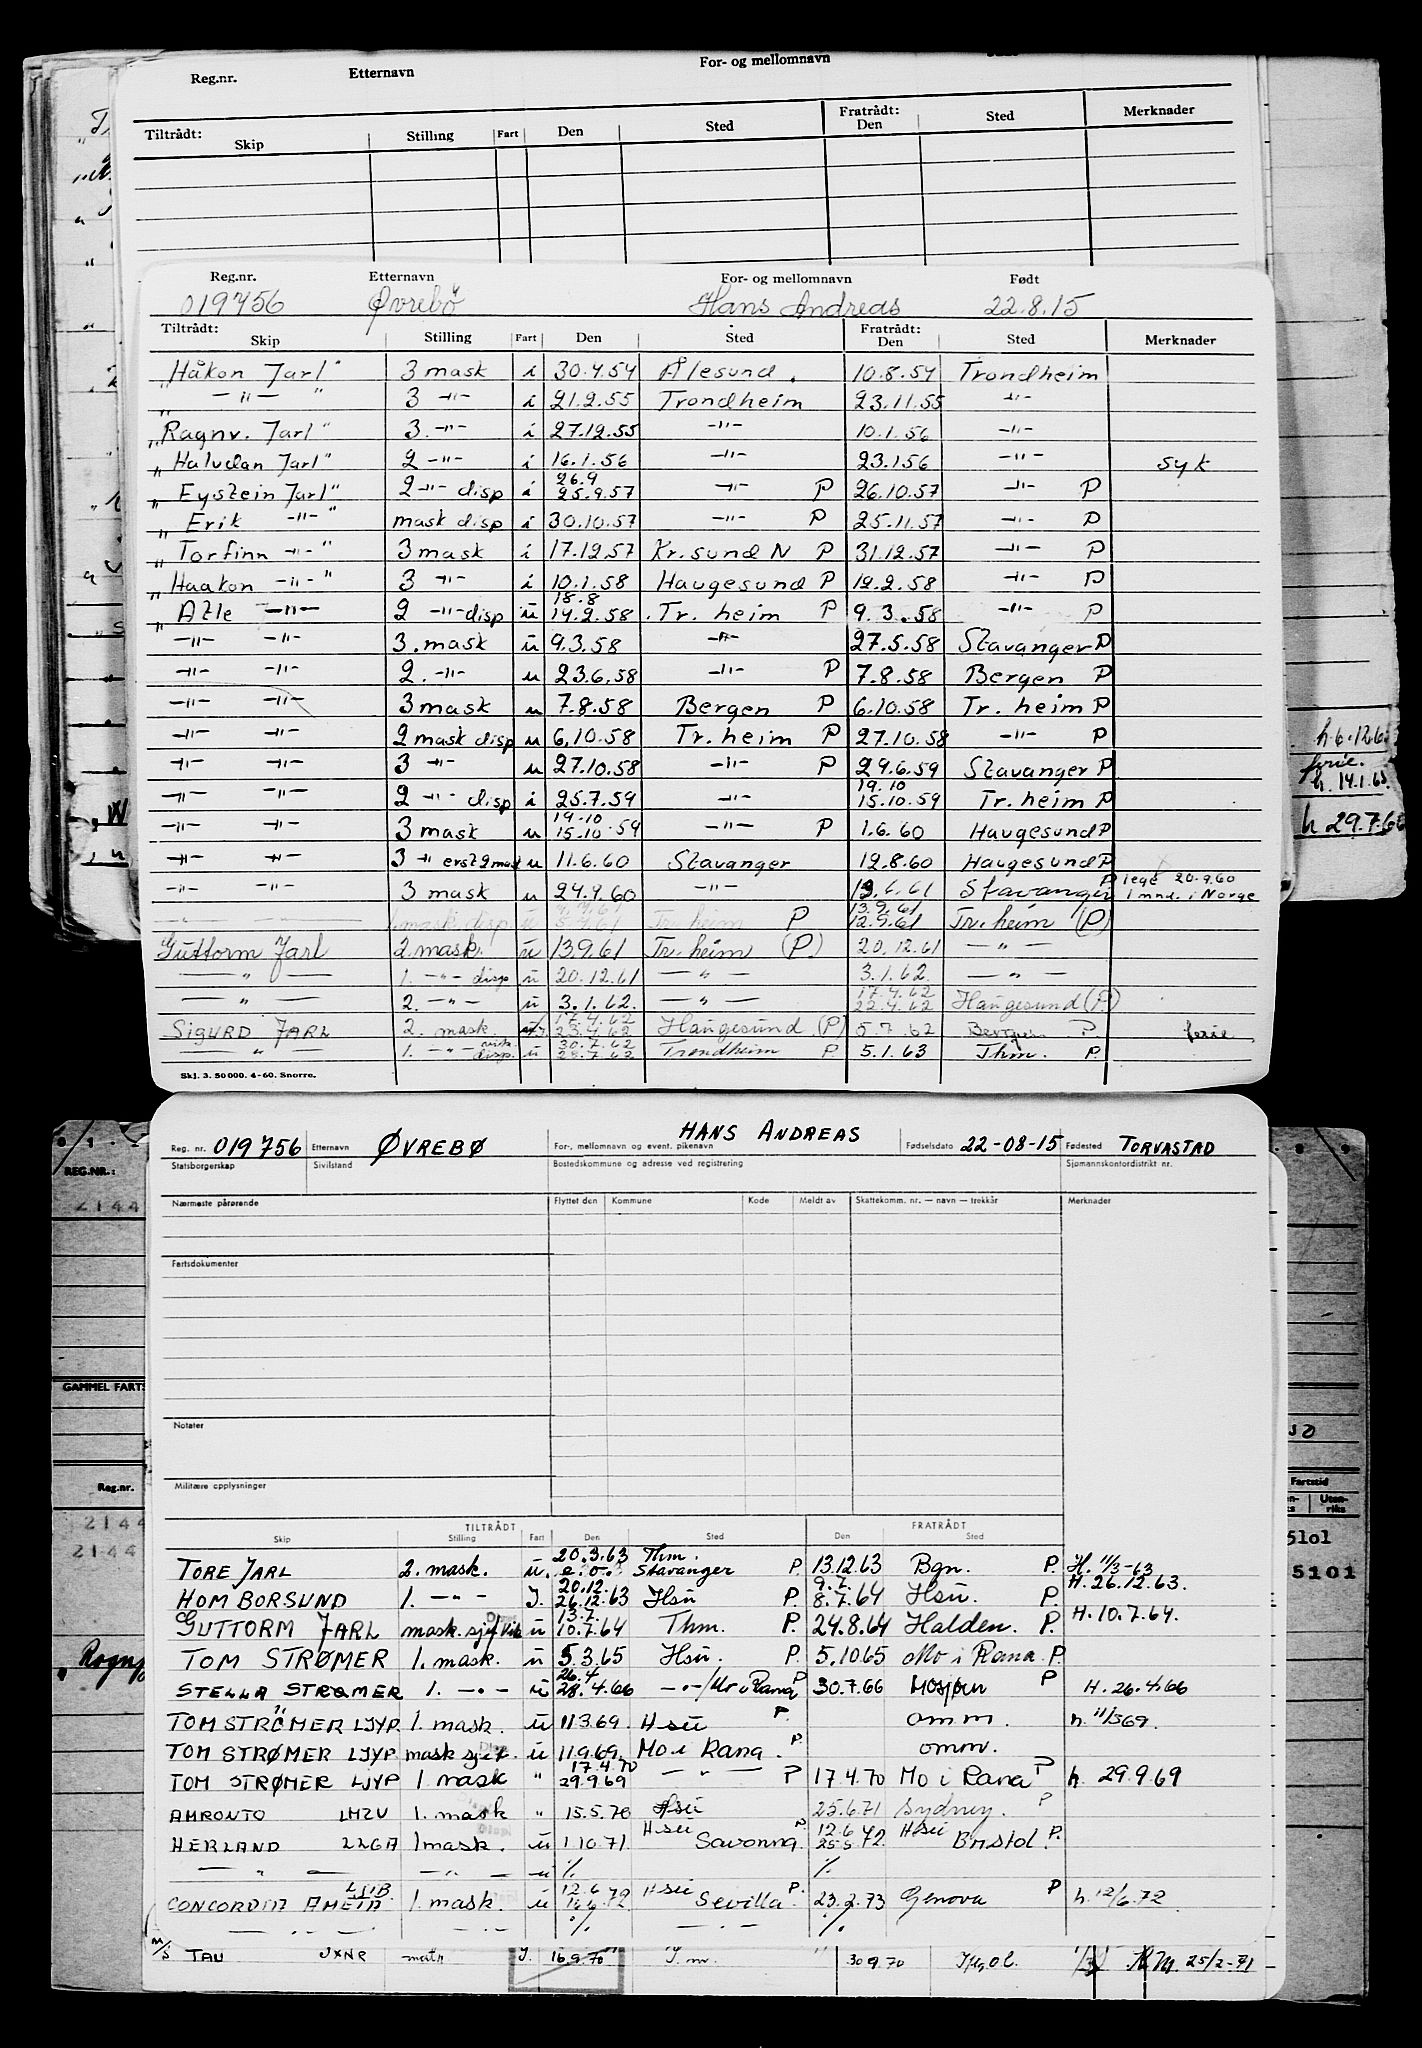 Reg.nr. Etternavn For- og mellomnavn
Tiltrådt: Skip Stilling Fart Den Sted Fratrådt: Den Sted Merknader
Reg.nr. Etternavn For- og mellomnavn Født
019756 Øvrebö Hans Andreas 22.8.15
Tiltrådt: Skip Stilling Fart Den Sted Fratrådt: Den Sted Merknader
"Håkon Jarl" 3 mask i 30.4.54 Ålesund. 10.8.54 Trondheim
" —"— " 3 —"— i 21.2.55 Trondheim 23.11.55 —"—
"Ragnv. Jarl" 3. —"— i 27.12.55 —"— 10.1.56 —"—
"Halvdan Jarl" 2 —"— i 16.1.56 —"— 23.1.56 —"— syk
"Eystein Jarl" 2 —"— disp i 26.9 25.9.57 —"— P 26.10.57 —"— P
"Erik —"— " mask disp i 30.10.57 —"— P 25.11.57 —"— P
"Torfinn —"— " 3 mask i 17.12.57 Kr.sund N P 31.12.57 —"— P
"Haakon —"— " 3 —"— i 10.1.58 Haugesund P 12.2.58 —"— P
"Atle —"— 2 —"— disp ü 18.8 14.2.58 Tr. heim P 9.3.58 —"— P
—"— —"— 3. mask ü 9.3.58 —"— 27.5.58 Stavanger P
—"— —"— 2. —"— u 23.6.58 —"— P 7.8.58 Bergen P
—"— —"— 3 mask u 7.8.58 Bergen P 6.10.58 Tr. heim P
—"— —"— 2 mask disp u 6.10.58 Tr. heim P 27.10.58 —"— P
—"— —"— 3 —"— u 27.10.58 —"— P 29.6.59 Stavanger P
—"— —"— 2 —"— disp i 25.7.59 —"— 19.10 15.10.59 Tr. heim P
—"— —"— 3 mask u 19.10 15.10.59 —"— P 1.6.60 Haugesund P
—"— —"— 3 —"— erst 2 mask u 11.6.60 Stavanger 12.8.60 Haugesund P
—"— —"— 3 mask u 24.9.60 —"— 13.6.61 Stavanger P lege 20.9.60 1 mnd. i Norge
—"— —"— mask. disp ü Tr. heim P 13.9.61 12.9.61 Tr. heim (P)
Guttorm Jarl 2. mask. ü 13.9.61 Tr. heim (P) 20.12.61 —"—
—"— 1. —"— disp ü 20.12.61 —"— 3.1.62. —"—
—"— 2. —"— ü 3.1.62. —"— 17.4.62 22.4.62 Haugesund (P)
SIGURD JARL 2. mask. 17.4.62 23.4.62 Haugesund (P) 5.7.62 Bergen P ferie
—"— 1. —"— msk. disp. ü 30.7.62 28.7.62 Trondheim P 5.1.63 Thm. P.
Skj. 3. 50 000. 4-60. Snorre.
h. 6.12.6
ferie.
h. 14.1.65
h 29.7.66
Reg. nr. 019756 Etternavn ØVREBØ For-, mellomnavn og event. pikenavn HANS ANDREAS Fødselsdato 22-08-15 Fødested TORVASTAD
Statsborgerskap Sivilstand Bostedskommune og adresse ved registrering Sjømannskontordistrikt nr.
Nærmeste pårørende Flyttet den Kommune Kode Meldt av Skattekomm. nr. — navn — trekkår Merknader
Fartsdokumenter
Notater
Militære opplysninger
REG.NR.:
2144
GAMMEL FARTS
Reg.nr.
2144
2144
Fartstid
Uten-riks
5101
5101
TILTRÅDT FRATRÅDT
Skip Stilling Fart Den Sted Den Sted
TORE JARL 2. mask. ü. 20.3.63 Thm. Stavanger P. 13.12.63 Bgn. P. H. 11/3-63
HOM BORSUND 1. —"— J. 20.12. 26.12.63 Hsü P. 9.7. 8.7.64 Hsü. P. H. 26.12.63.
GUTTORM JARL mask. sjef Vik ü 13.7. 10.7.64 Thm. P. 24.8.64 Halden. P. H. 10.7.64.
TOM STRØMER 1. mask. ü 5.3.65 Hsü. P. 5.10.65 Mo i Rana P.
STELLA STRØMER 1. —"— ü 26.4 28.4.66 —"—/Mo i Rana P 30.7.66 Mosjøen P H. 26.4.66
TOM STRÖMER LJYP. 1. mask. ü 11.3.69. Hsü P. omm. h. 11/3 69.
TOM STRØMER LJYP mask sjef. ü 11.9.69. Mo i Rana. P. omm.
TOM STRØMER LJYP 1 mask " 17.4.70 29.9.69 —"— P 17.4.70 Mo i Rana P h. 29.9.69
AMRONTO LMZU 1. mask " 15.5.70 Hsü 25.6.71 Sydney. P
HERLAND LLGA 1 mask. ü 1.10.71 Hsü Savonna. P. 12.6 25.5.72 Hsü Bristol. P.
—"— —"— —"— % %
CONCORDIA AMETA 1 mask. ü 12.6 16.6.72 Hsü Sevilla P. 23.2.73 Genova P h. 12/6.72
—"— —"— % —"— %
M/S TAU JXNR matr. J. 16.9.70 30.9.70 25/2-71